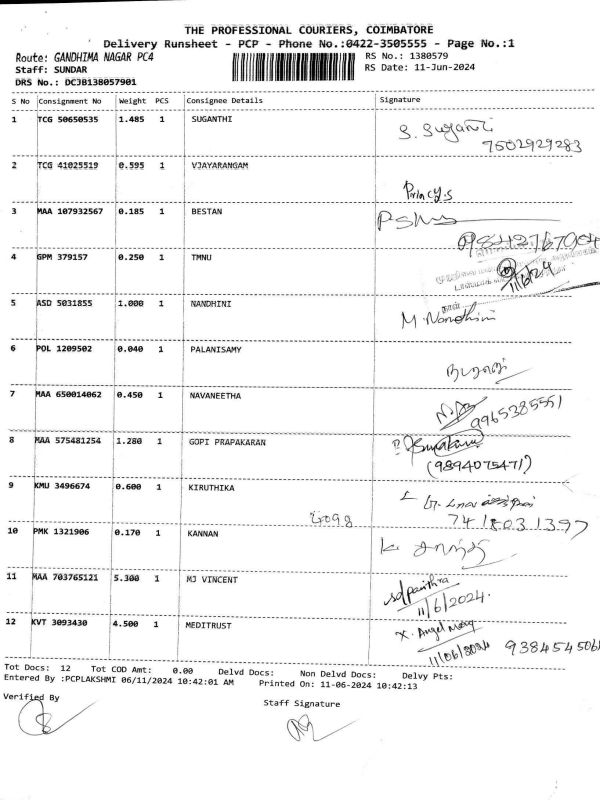 THE PROFESSIONAL COURIERS, COIMBATORE
Delivery Runsheet - PCP - Phone No.:0422-3505555 - Page No.:1
Route: GANDHIMA NAGAR PC4
RS No.: 1380579
Staff: SUNDAR
RS Date: 11-Jun-2024
DRS No.: DCJB138057901
S No Consignment No Weight PCS Consignee Details Signature
1 TCG 50650535 1.485 1 SUGANTHI
S. Suganti
7502929283
2 TCG 41025519 0.595 1 VJAYARANGAM
Princy.S
3 MAA 107932567 0.185 1 BESTAN
4 GPM 379157 0.250 1 TMNU
11/6/24
5 ASD 5031855 1.000 1 NANDHINI
M. Nandhini
6 POL 1209502 0.040 1 PALANISAMY
7 MAA 650014062 0.450 1 NAVANEETHA
9965385551
8 MAA 575481254 1.280 1 GOPI PRAPAKARAN
(9894075471)
9 KMU 3496674 0.600 1 KIRUTHIKA
7418031397
10 PMK 1321906 0.170 1 KANNAN
K. சாந்தி
11 MAA 703765121 5.300 1 MJ VINCENT
11/6/2024.
12 KVT 3093430 4.500 1 MEDITRUST
X. Angel Mary
11/06/2024
Tot Docs: 12 Tot COD Amt: 0.00 Delvd Docs: Non Delvd Docs: Delvy Pts:
Entered By :PCPLAKSHMI 06/11/2024 10:42:01 AM Printed On: 11-06-2024 10:42:13
Verified By
Staff Signature